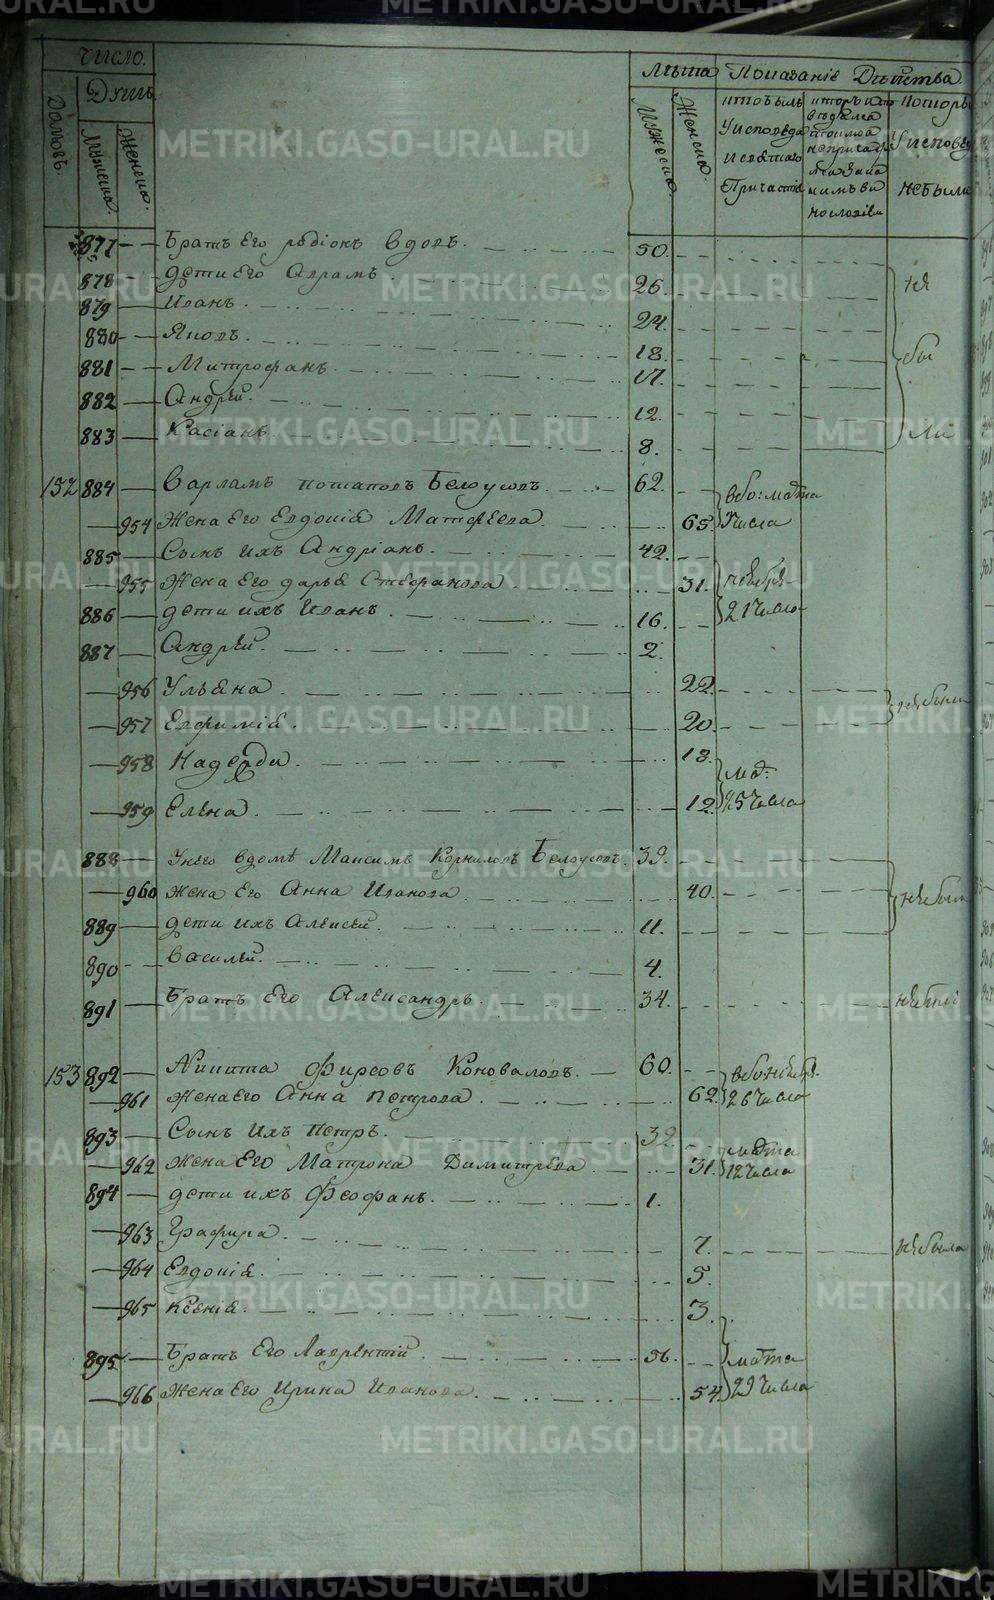 Число.
Домовъ.
Душъ
Мужеска.
Женска.
Лѣта
Мужеска
Женска.
Показаніе Дѣйства.
кто былъ
У исповѣди
и святаго
Причастія
Которы
У исповѣд
не были
877 Братъ Его родіонъ вдовъ. 50.
878 дети Его Аврамъ 26.
879 Иванъ. 24.
880 Яковъ. 18.
881 Митрофанъ. 17.
882 Андрей. 12.
883 Касіанъ. 8.
не
бы
ли
152 884 Варламъ потаповъ Белоусовъ. 62.
954 Жена Его Евдокія Матфеева. 65. числа
885 Сынъ ихъ Андріанъ. 42.
955 Жена Его дарья Стефанова 31.
886 дети ихъ Иванъ. 16. 21 числа
887 Андрей. 2.
956 Ульяна. 22. не были
957 Евфимія. 20.
958 Надежди. 13.
959 Елена. 12. 25 числа
888 У него вдомѣ Максимъ Корниловъ Белоусовъ. 39.
960 жена Его Анна Иванова. 40. не были
889 дети ихъ Алексей. 11.
890 Василей. 4.
891 Братъ Его Александръ. 34. не былъ
153 892 Никита Фирсовъ Коноваловъ. 60.
961 Жена Его Анна Петрова. 62. 26 числа
893 Сынъ Ихъ Петръ. 32.
962 Жена Его Матрона Димитрева. 31. марта 12 числа
894 дети ихъ Феофанъ. 1.
963 Графира. 7. не была
964 Евдокія. 5.
965 Ксенія. 3.
895 Братъ Его Лаврентій. 56. марта
966 Жена Его Ирина Иванова. 54. 29 числа
METRIKI.GASO-URAL.RU